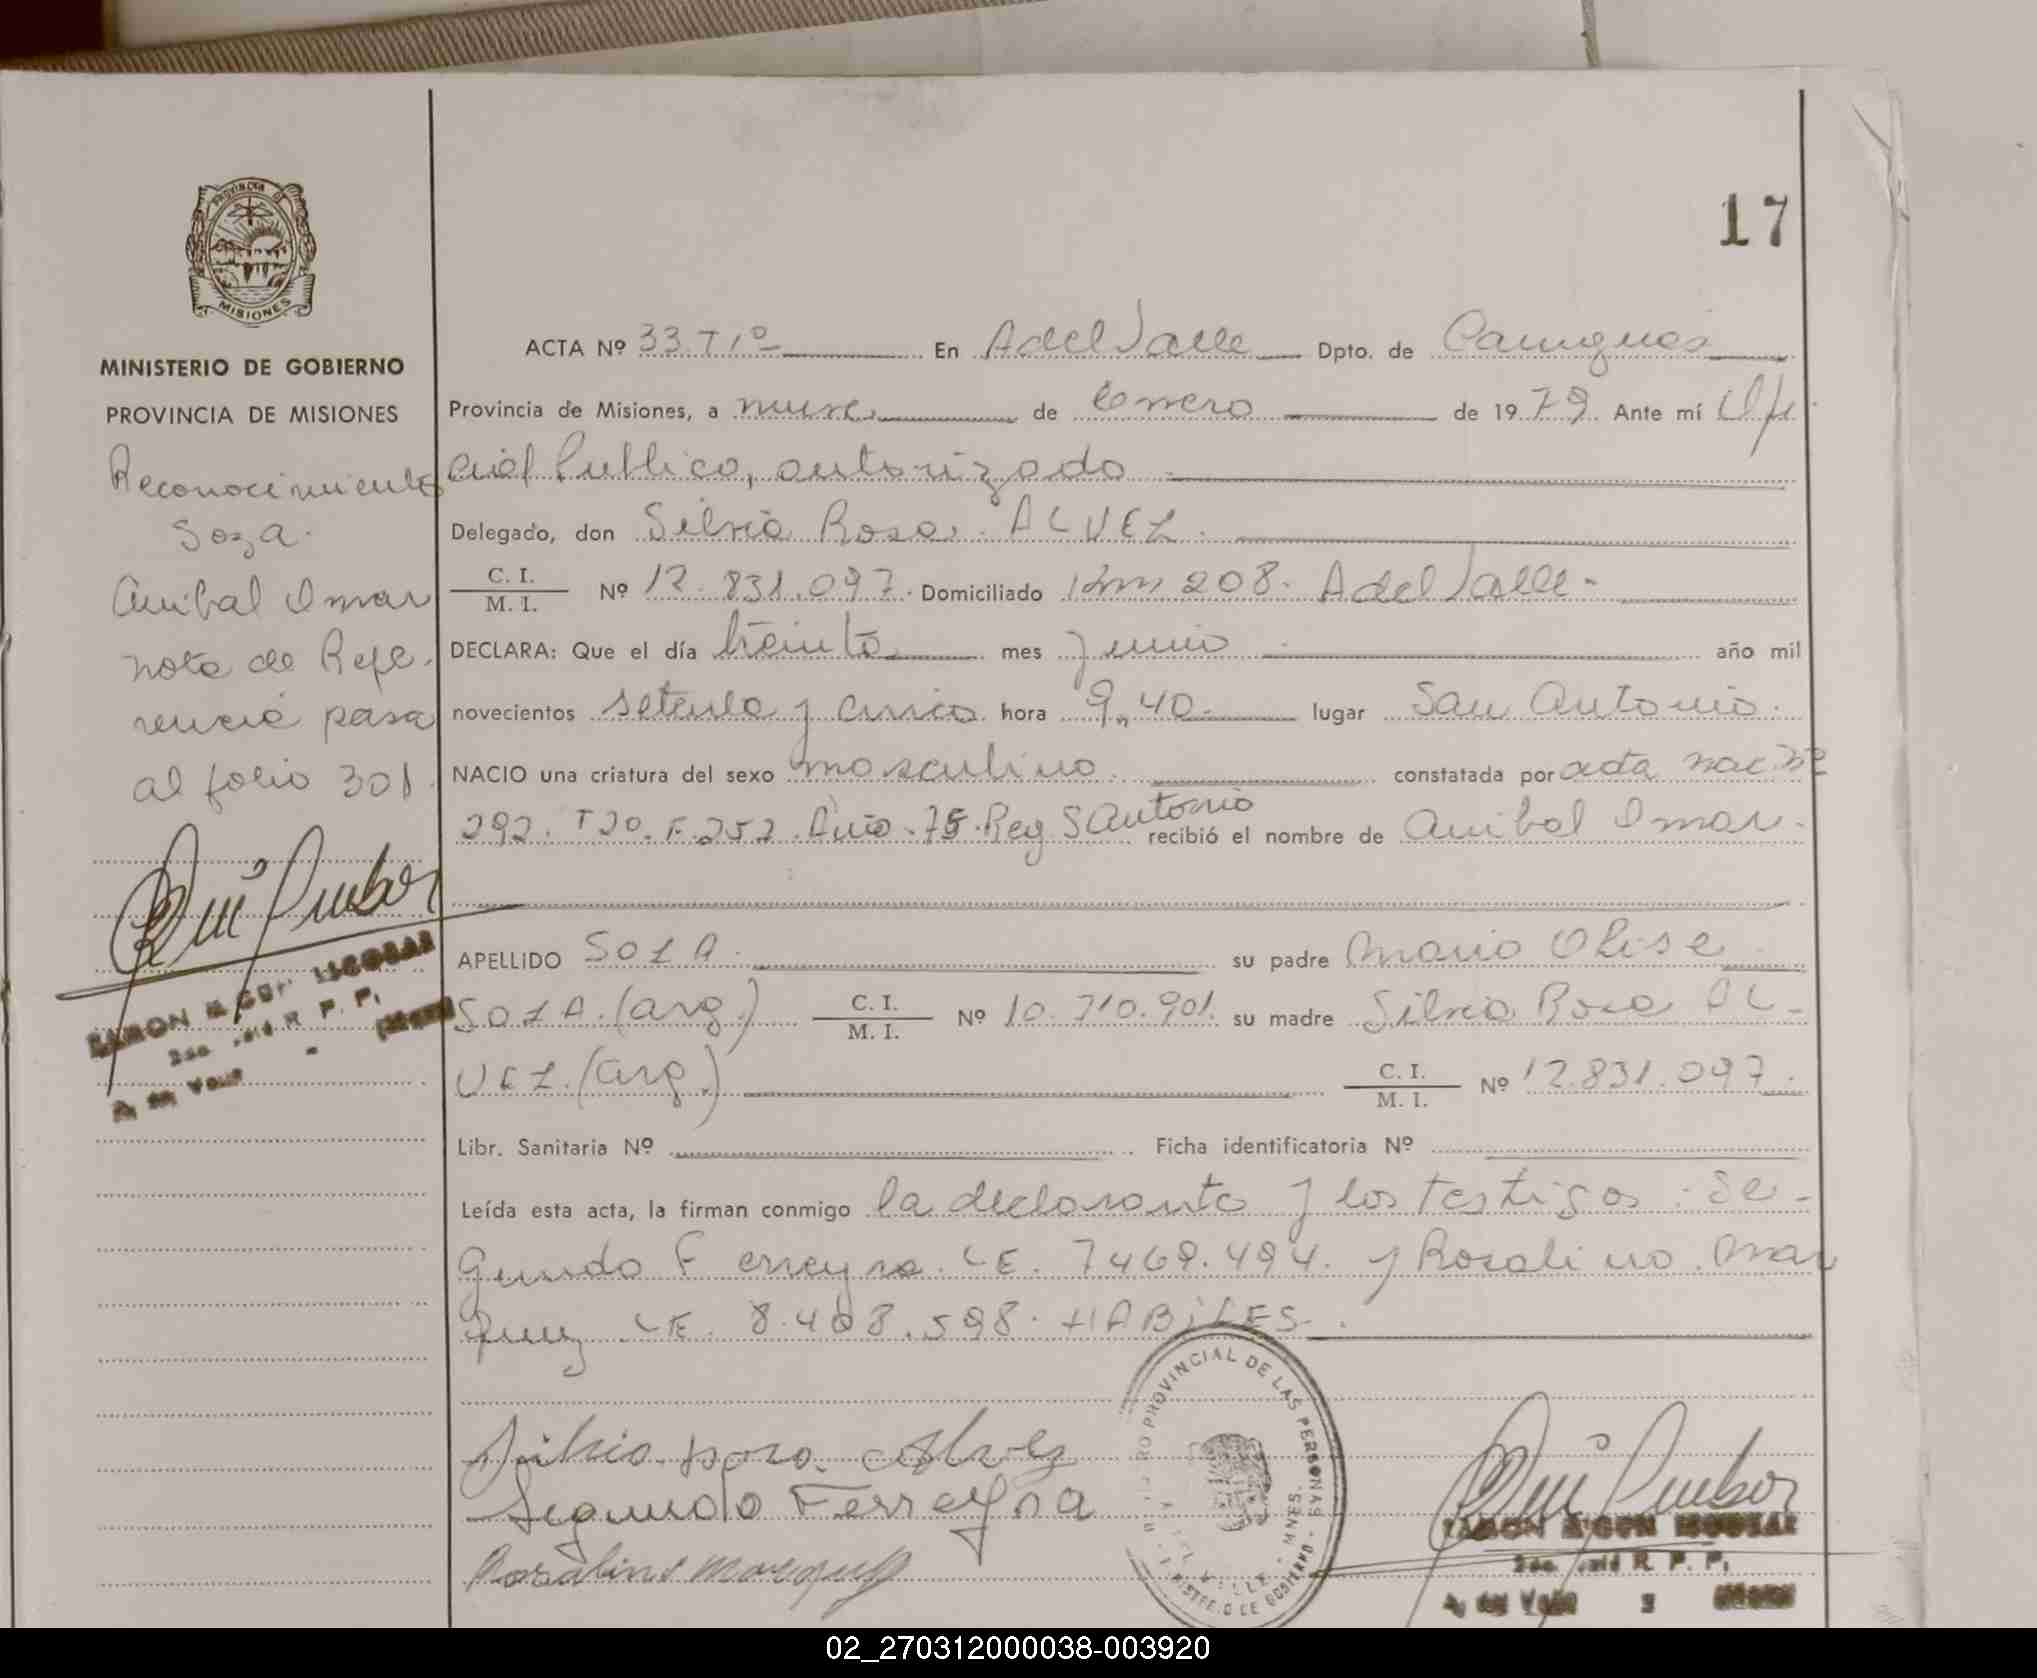 17
PROVINCIA DE
MISIONES
MINISTERIO DE GOBIERNO
PROVINCIA DE MISIONES
Reconocimiento
Soza.
Anibal Omar
nota de Refe-
rencia pasa
al folio 301.
RAMON
R. P. P.
ACTA Nº 33. T 1º En A del Valle Dpto. de Cainguas
Provincia de Misiones, a nueve de Enero de 1979. Ante mí Ofi-
cial Publico, autorizado
Delegado, don Silvia Rosa ALVEZ.
C. I.
M. I. Nº 12.831.097. Domiciliado Km 208. A del Valle.
DECLARA: Que el día treinta mes junio año mil
novecientos setenta y cinco hora 9,40. lugar San Antonio.
NACIO una criatura del sexo masculino. constatada por acta nac Nº
292. T 20. F. 252. Año 75. Reg. S Antonio recibió el nombre de Anibal Omar.
APELLIDO SOZA. su padre Mario
SOZA. (arg.) C. I.
M. I. Nº 10.710.901. su madre Silvia Rosa AL-
VEZ. (arg.) C. I.
M. I. Nº 12.831.097.
Libr. Sanitaria Nº Ficha identificatoria Nº
Leída esta acta, la firman conmigo la declarante y los testigos: Se-
gundo Ferreyra. LE. 7469.494. y Rosalino Mar
quez LE. 8.408.598. HABiLES.
Silvia Rosa Alvez
Segundo Ferreyra
Rosalino Marquez
PROVINCIAL DE LAS PERSONAS
RAMON
R. P. P.
02_270312000038-003920